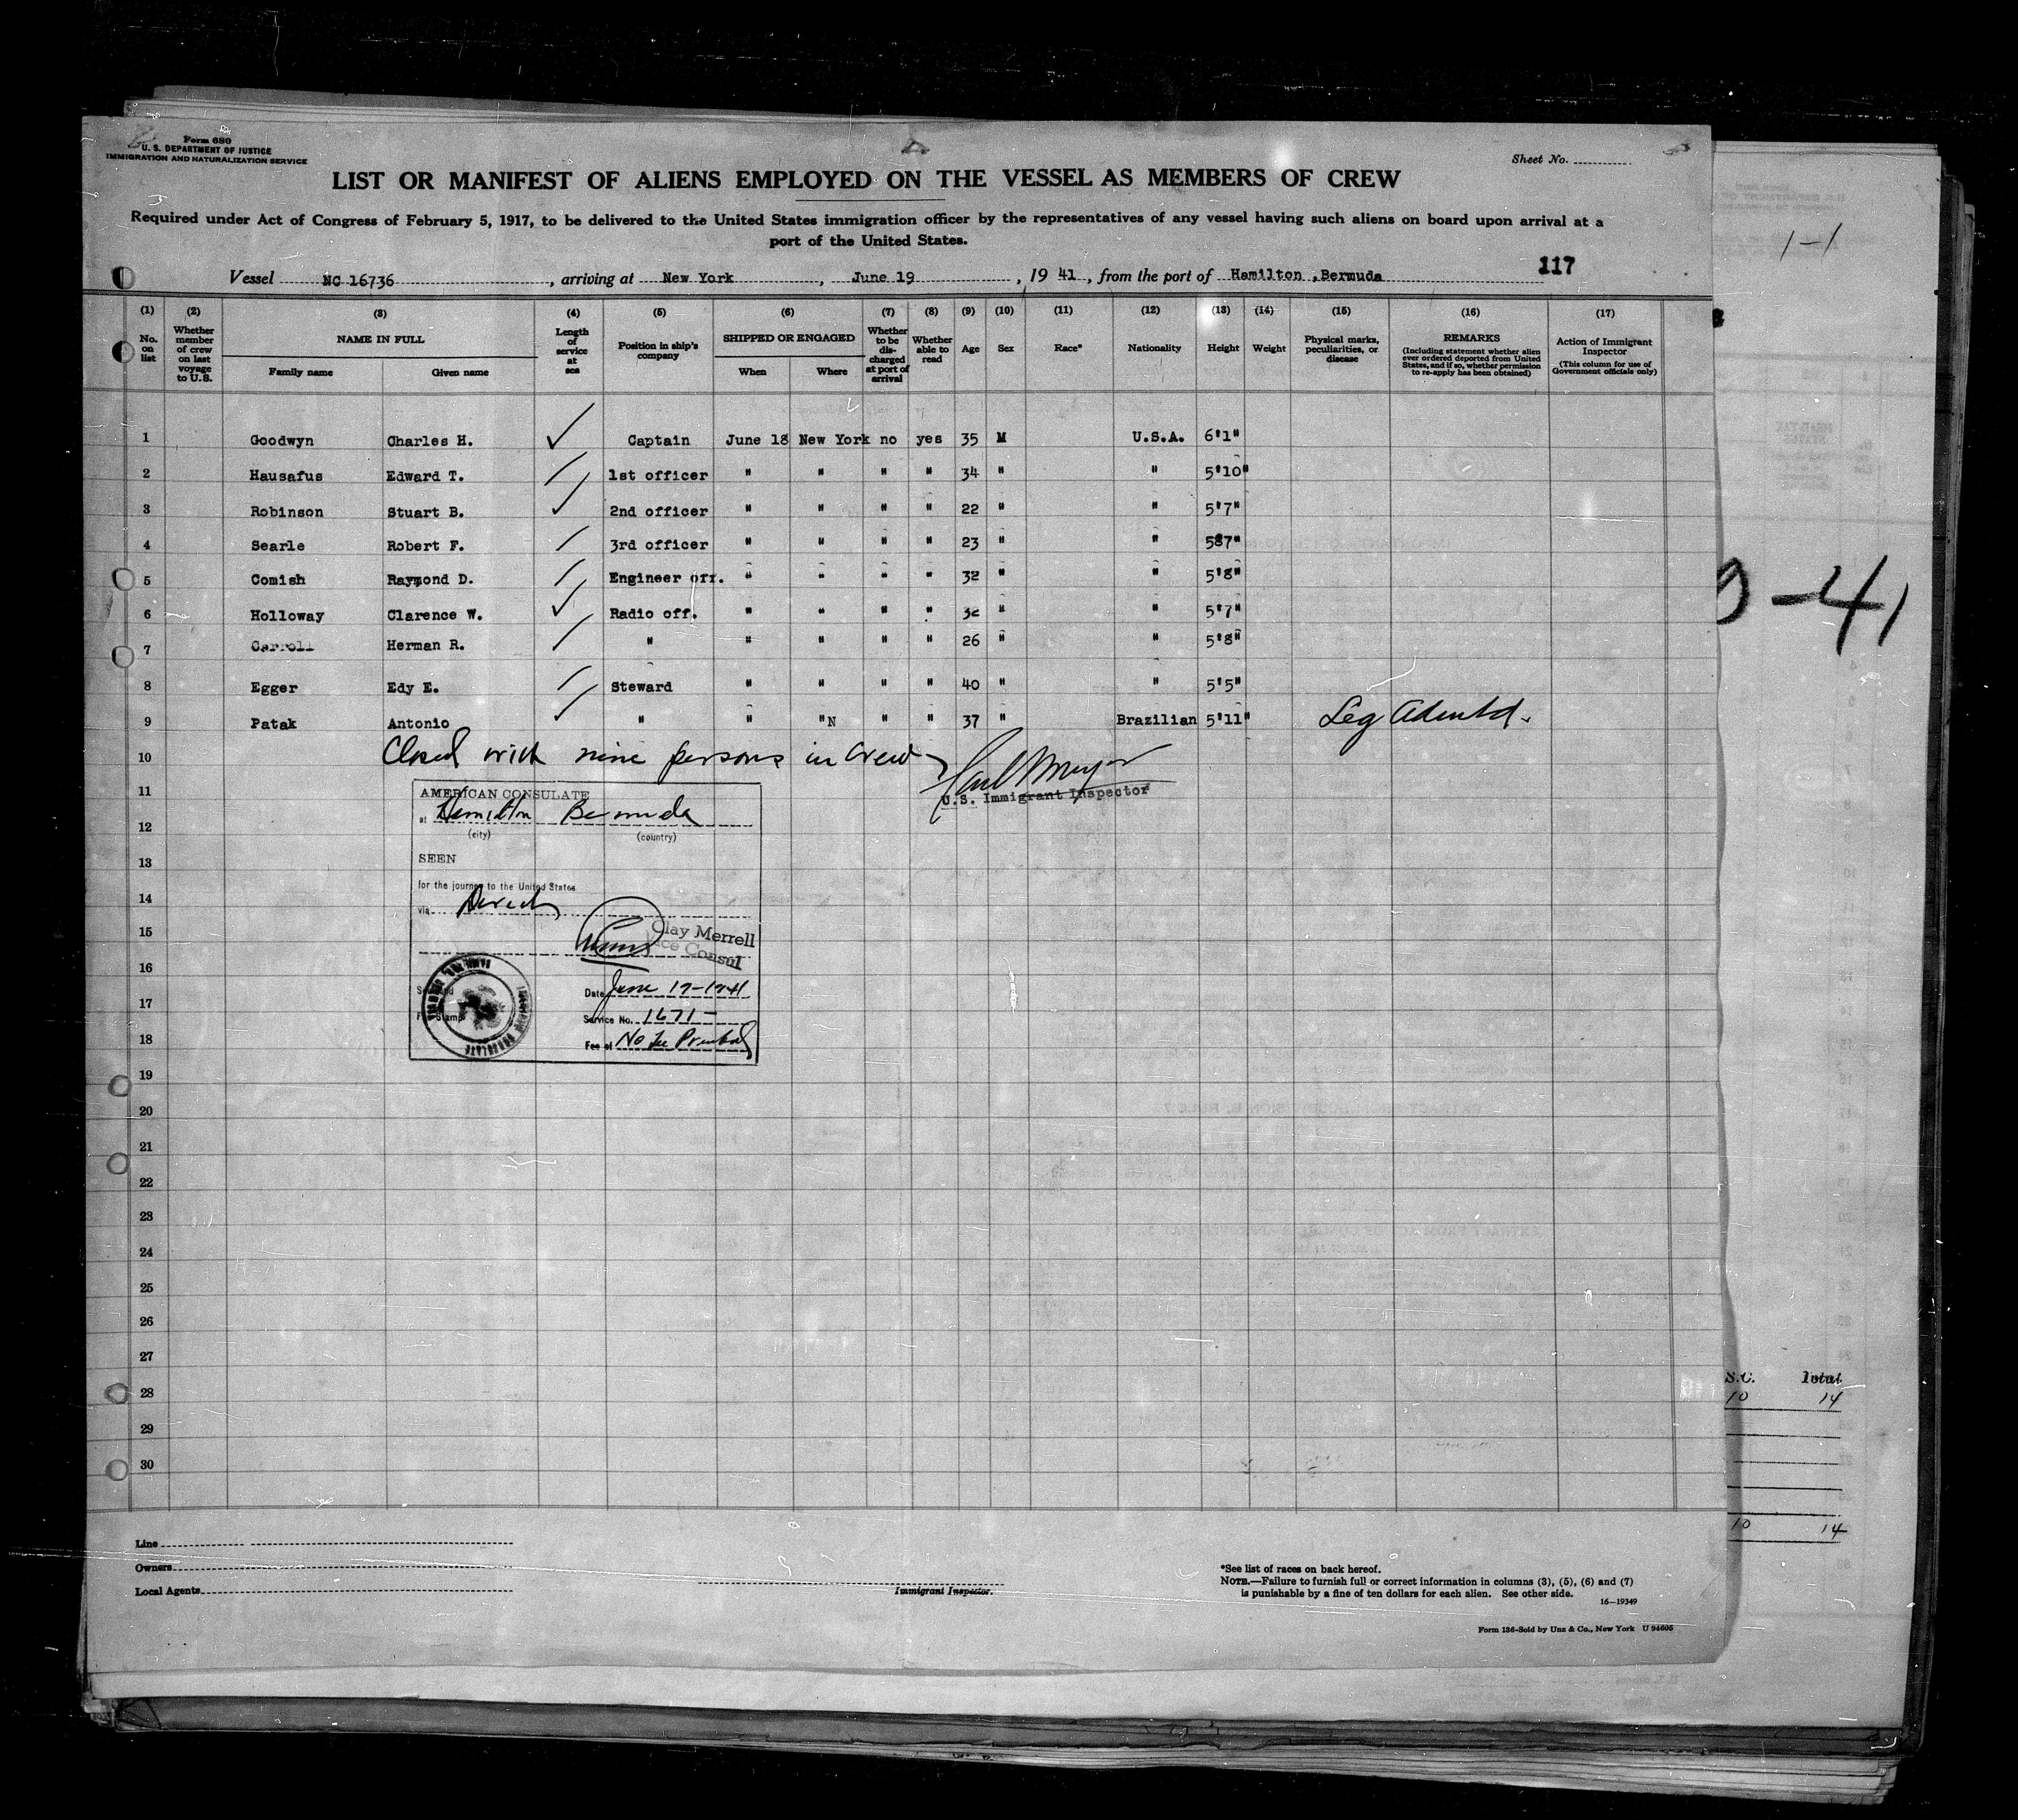 Form 680
U. S. DEPARTMENT OF JUSTICE
IMMIGRATION AND NATURALIZATION SERVICE
Sheet No.
LIST OR MANIFEST OF ALIENS EMPLOYED ON THE VESSEL AS MEMBERS OF CREW
Required under Act of Congress of February 5, 1917, to be delivered to the United States immigration officer by the representatives of any vessel having such aliens on board upon arrival at a
port of the United States.
1-1
Vessel NC 16736, arriving at New York, June 19, 19 41, from the port of Hamilton, Bermuda 117
(1) No. on list
(2) Whether member of crew on last voyage to U.S.
(3) NAME IN FULL
Family name Given name
(4) Length of service at sea
(5) Position in ship's company
(6) SHIPPED OR ENGAGED
When Where
(7) Whether to be discharged at port of arrival
(8) Whether able to read
(9) Age
(10) Sex
(11) Race*
(12) Nationality
(13) Height
(14) Weight
(15) Physical marks, peculiarities, or disease
(16) REMARKS
(Including statement whether alien ever ordered deported from United States, and if so, whether permission to re-apply has been obtained)
(17) Action of Immigrant Inspector
(This column for use of Government officials only)
1 Goodwyn Charles H. Captain June 18 New York no yes 35 M U.S.A. 6'1"
2 Hausafus Edward T. 1st officer " " " " 34 " " 5'10"
3 Robinson Stuart B. 2nd officer " " " " 22 " " 5'7"
4 Searle Robert F. 3rd officer " " " " 23 " " 5'7"
5 Comish Raymond D. Engineer off. " " " " 32 " " 5'8"
6 Holloway Clarence W. Radio off. " " " " 32 " " 5'7"
7 Carroll Herman R. " " " " " 26 " " 5'8"
8 Egger Edy E. Steward " " " " 40 " " 5'5"
9 Patak Antonio " " "N " " 37 " Brazilian 5'11" Leg
-41
10 Closed with nine persons in crew
Carl Meyer
U.S. Immigrant Inspector
11
12
13
14
15
16
17
18
19
20
21
22
23
24
25
26
27
28
29
30
AMERICAN CONSULATE
at Hamilton Bermuda
(city) (country)
SEEN
for the journey to the United States
via Direct
Clay Merrell
Vice Consul
Date June 19-1941
Service No. 1671-
Fee of No fee
S.C. Total
10 14
10 14
Line
Owners
Local Agents
Immigrant Inspector.
*See list of races on back hereof.
NOTE.—Failure to furnish full or correct information in columns (3), (5), (6) and (7)
is punishable by a fine of ten dollars for each alien. See other side.
16—19349
Form 136-Sold by Unz & Co., New York U 94605